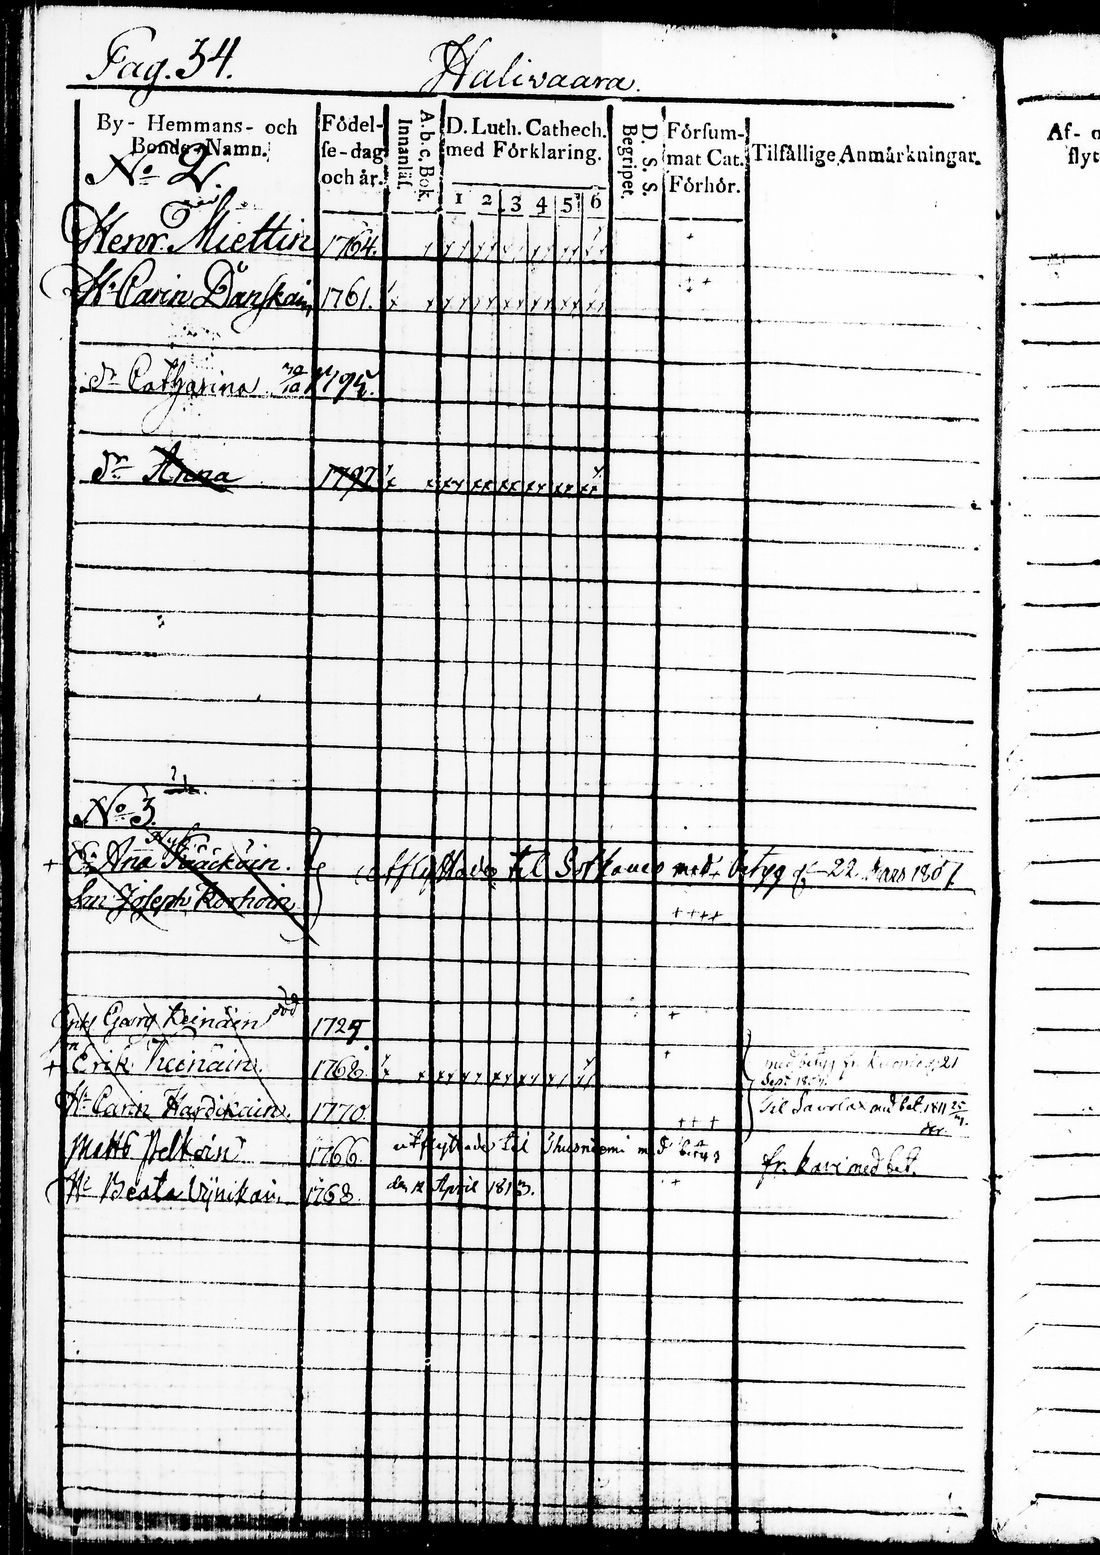 Pag. 34. Halivaara.
By- Hemmans- och Bonde-Namn.
Födel-se-dag och år.
A.b.c. Bok. Innanläs.
D. Luth. Cathech. med Förklaring.
1 2 3 4 5 6
D. S. S. Begripet.
Försum-mat Cat. Förhör.
Tilfällige Anmärkningar.
Af- o
flyt
No 2.
Henr. Miettin 1764.
H. Carin Danskain 1761.
dr Catharina 1795.
dr Anna 1797
No 3.
Ana
utflyttade til Sotkamo med betyg d. 22 Mars 1807
Son Joseph Korhoin
Georg Keinäin död 1725
Erik Keinäin. 1768.
med betyg fr. Kuopio d. 21
Sept.
H. Carin Hardikain. 1770.
Til Savolax med bet. 1811
Matts Pelkoin 1766. utflyttade til med betyg
fr. Kavi med bet.
H. Beata 1768. den 12 April 1813.